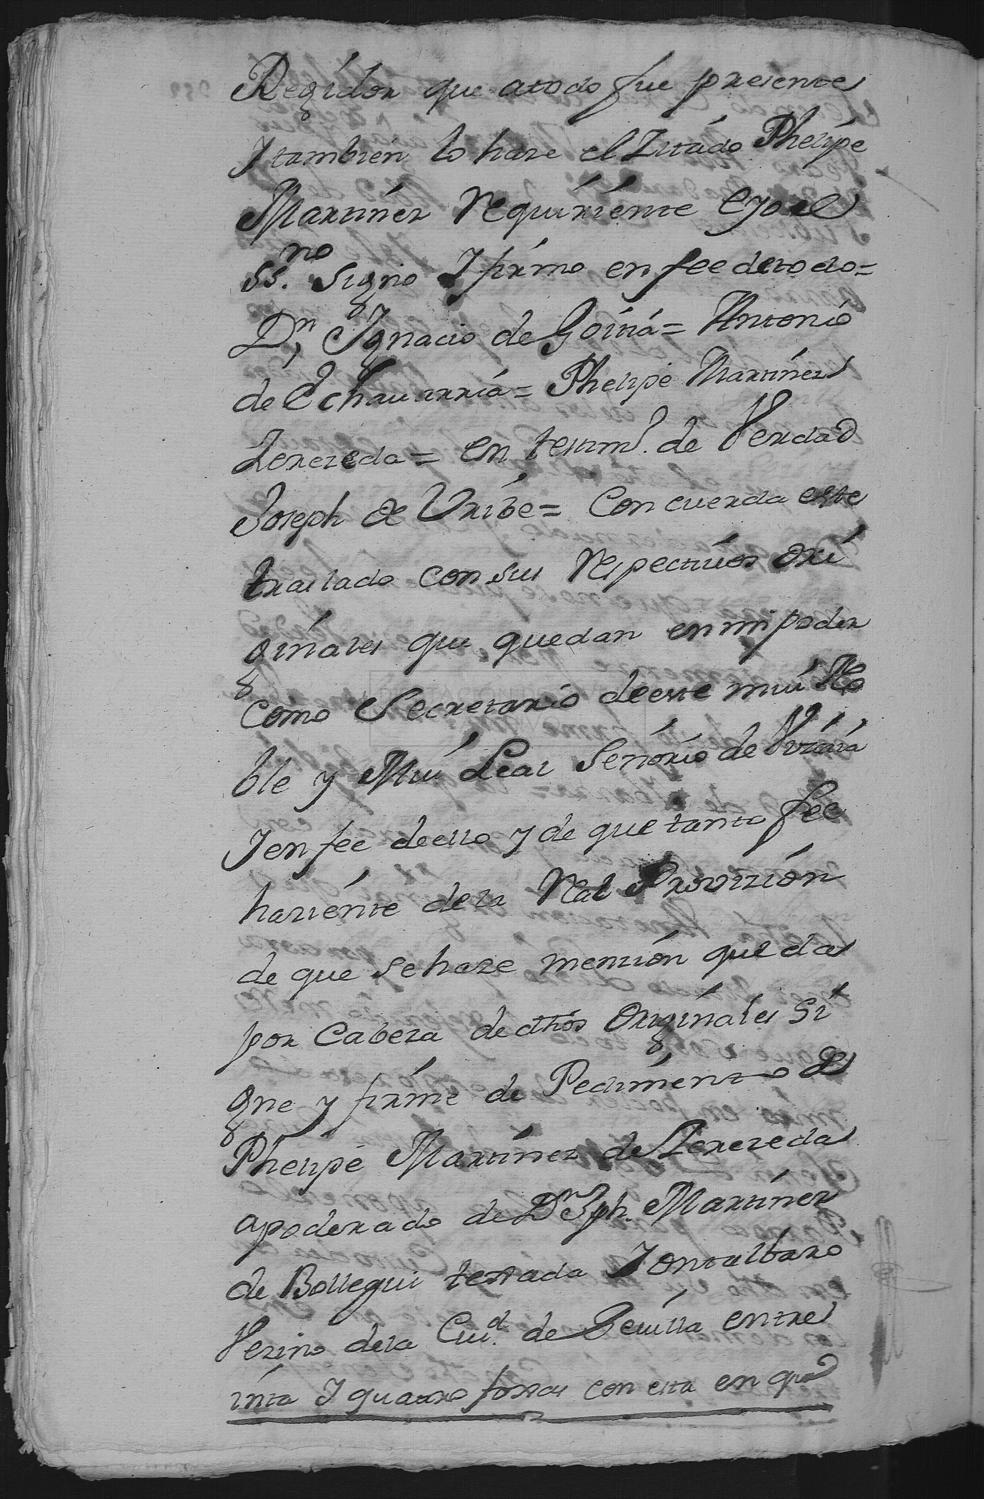 Regidor que atodo fue presente
Y tambien lo haze el Zitado Phelipe
Martinez Requiriente E yo el
SS.no Signo Y firmo en fee detodo=
Dn Ygnacio de Goiria= Antonio
de Echauarria= Phelipe Martinez
Zerezeda= en testimo. de Verdad
Joseph de Uribe= Concuerda este
traslado con sus Respectiuos ori
ginales que quedan en mi poder
como Secretario de este mui No
ble y Mui Leal Señorio de Vizcaia
Y en fee de ello y de que tanto fee
haziente dela Real Provizion
de que se haze menzion queda
por Cabeza de dhos Originales Si
gne y firme de Pedimento de
Phelipe Martinez de Zerezeda
apoderado de Dn Jph. Martinez
de Bollegui terrada Y ontalbaro
Vezino dela Ciud. de Seuilla entre
inta Y quatro foxas con esta en que